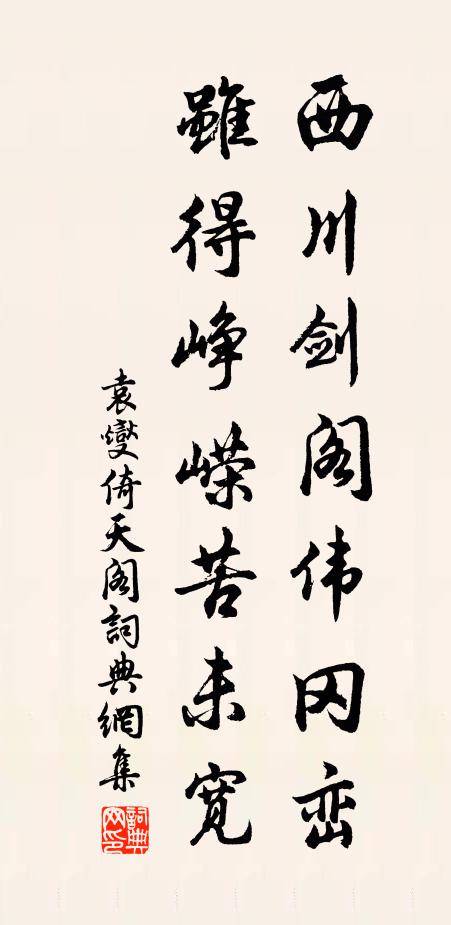 西川剑阁伟冈峦
雖得峥嵘苦未寬
袁燮倚天阁詞典網集
詞典网印